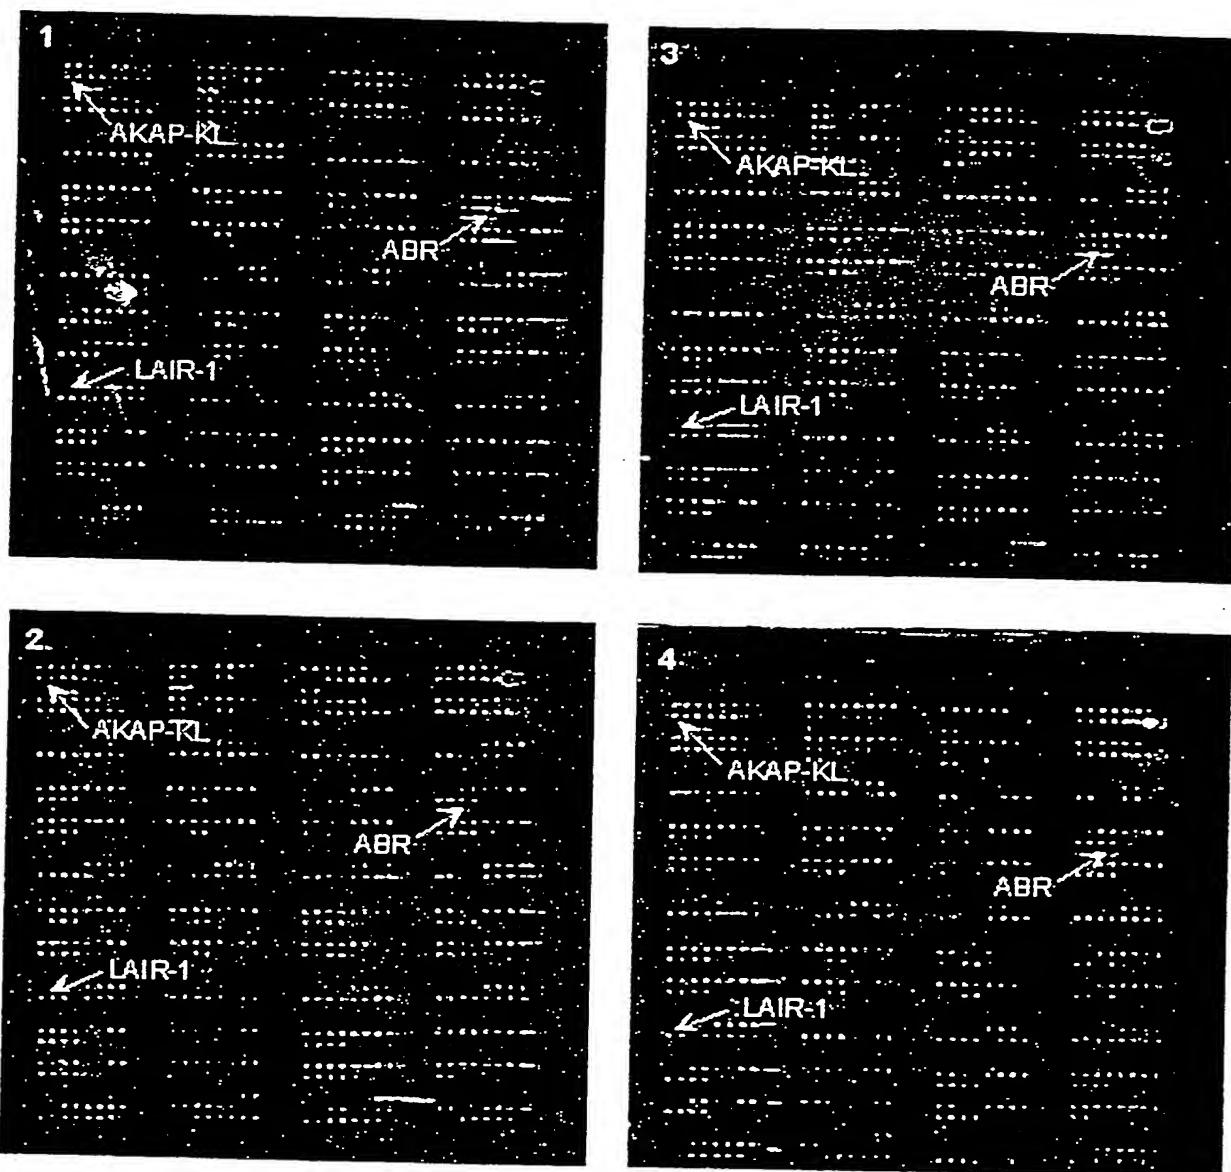 1
AKAP-KL
ABR
LAIR-1
3
AKAP-KL
ABR
LAIR-1
2
AKAP-KL
ABR
LAIR-1
4
AKAP-KL
ABR
LAIR-1